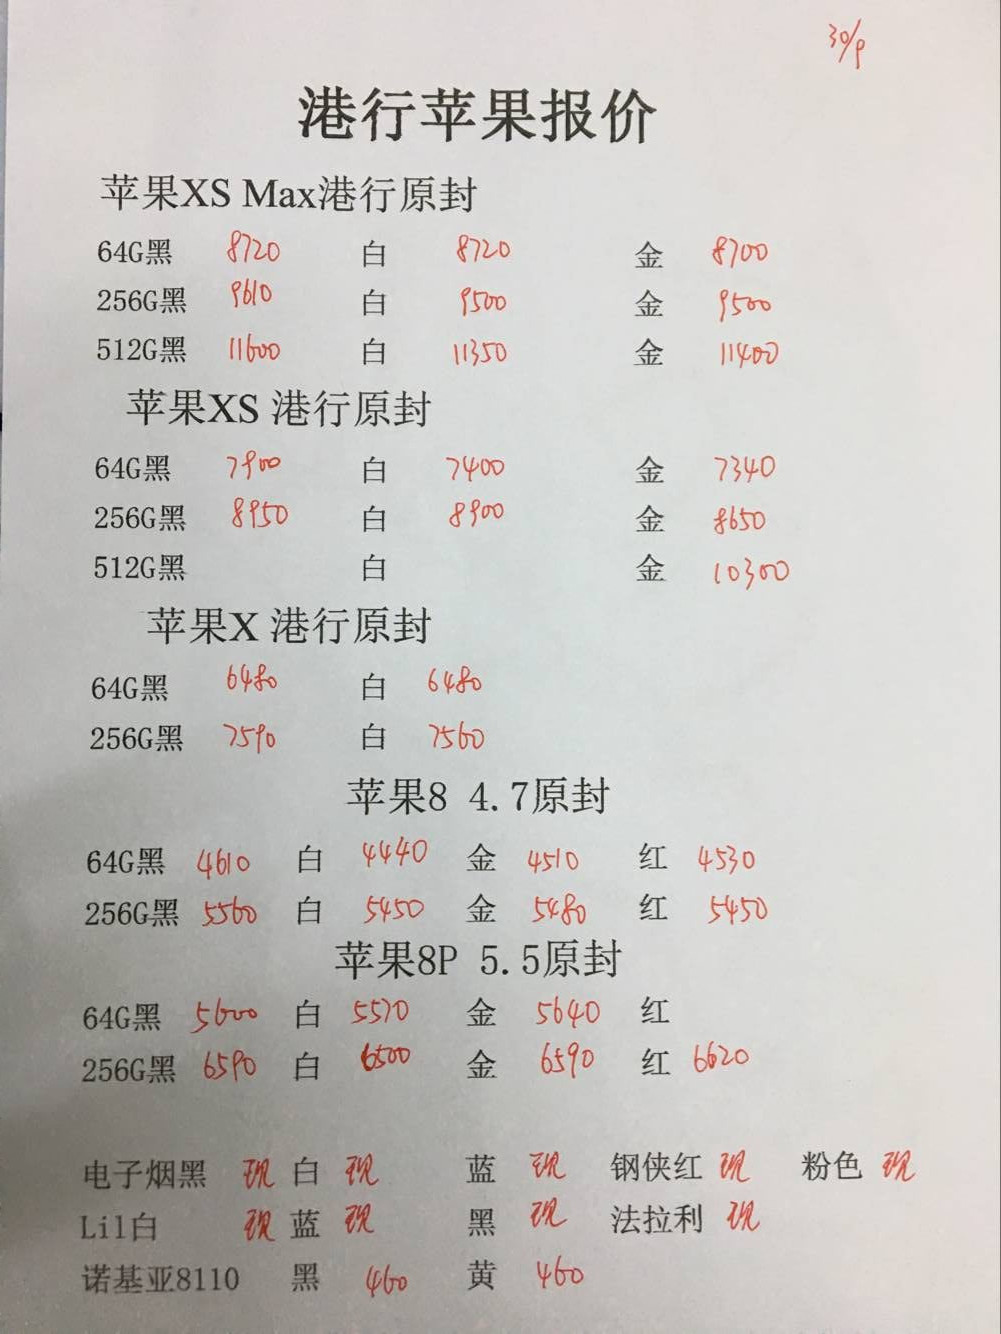 30/9
港行苹果报价
苹果XS Max港行原封
64G黑 8720 白 8720 金 8700
256G黑 9610 白 9500 金 9500
512G黑 11600 白 11350 金 11400
苹果XS 港行原封
64G黑 7900 白 7400 金 7340
256G黑 8950 白 8900 金 8650
512G黑 白 金 10300
苹果X 港行原封
64G黑 6480 白 6480
256G黑 7590 白 7560
苹果8 4.7原封
64G黑 4610 白 4440 金 4510 红 4530
256G黑 5560 白 5450 金 5480 红 5450
苹果8P 5.5原封
64G黑 5600 白 5570 金 5640 红
256G黑 6590 白 6500 金 6590 红 6620
电子烟黑 现 白 现 蓝 现 钢侠红 现 粉色 现
Lil白 现 蓝 现 黑 现 法拉利 现
诺基亚8110 黑 460 黄 460